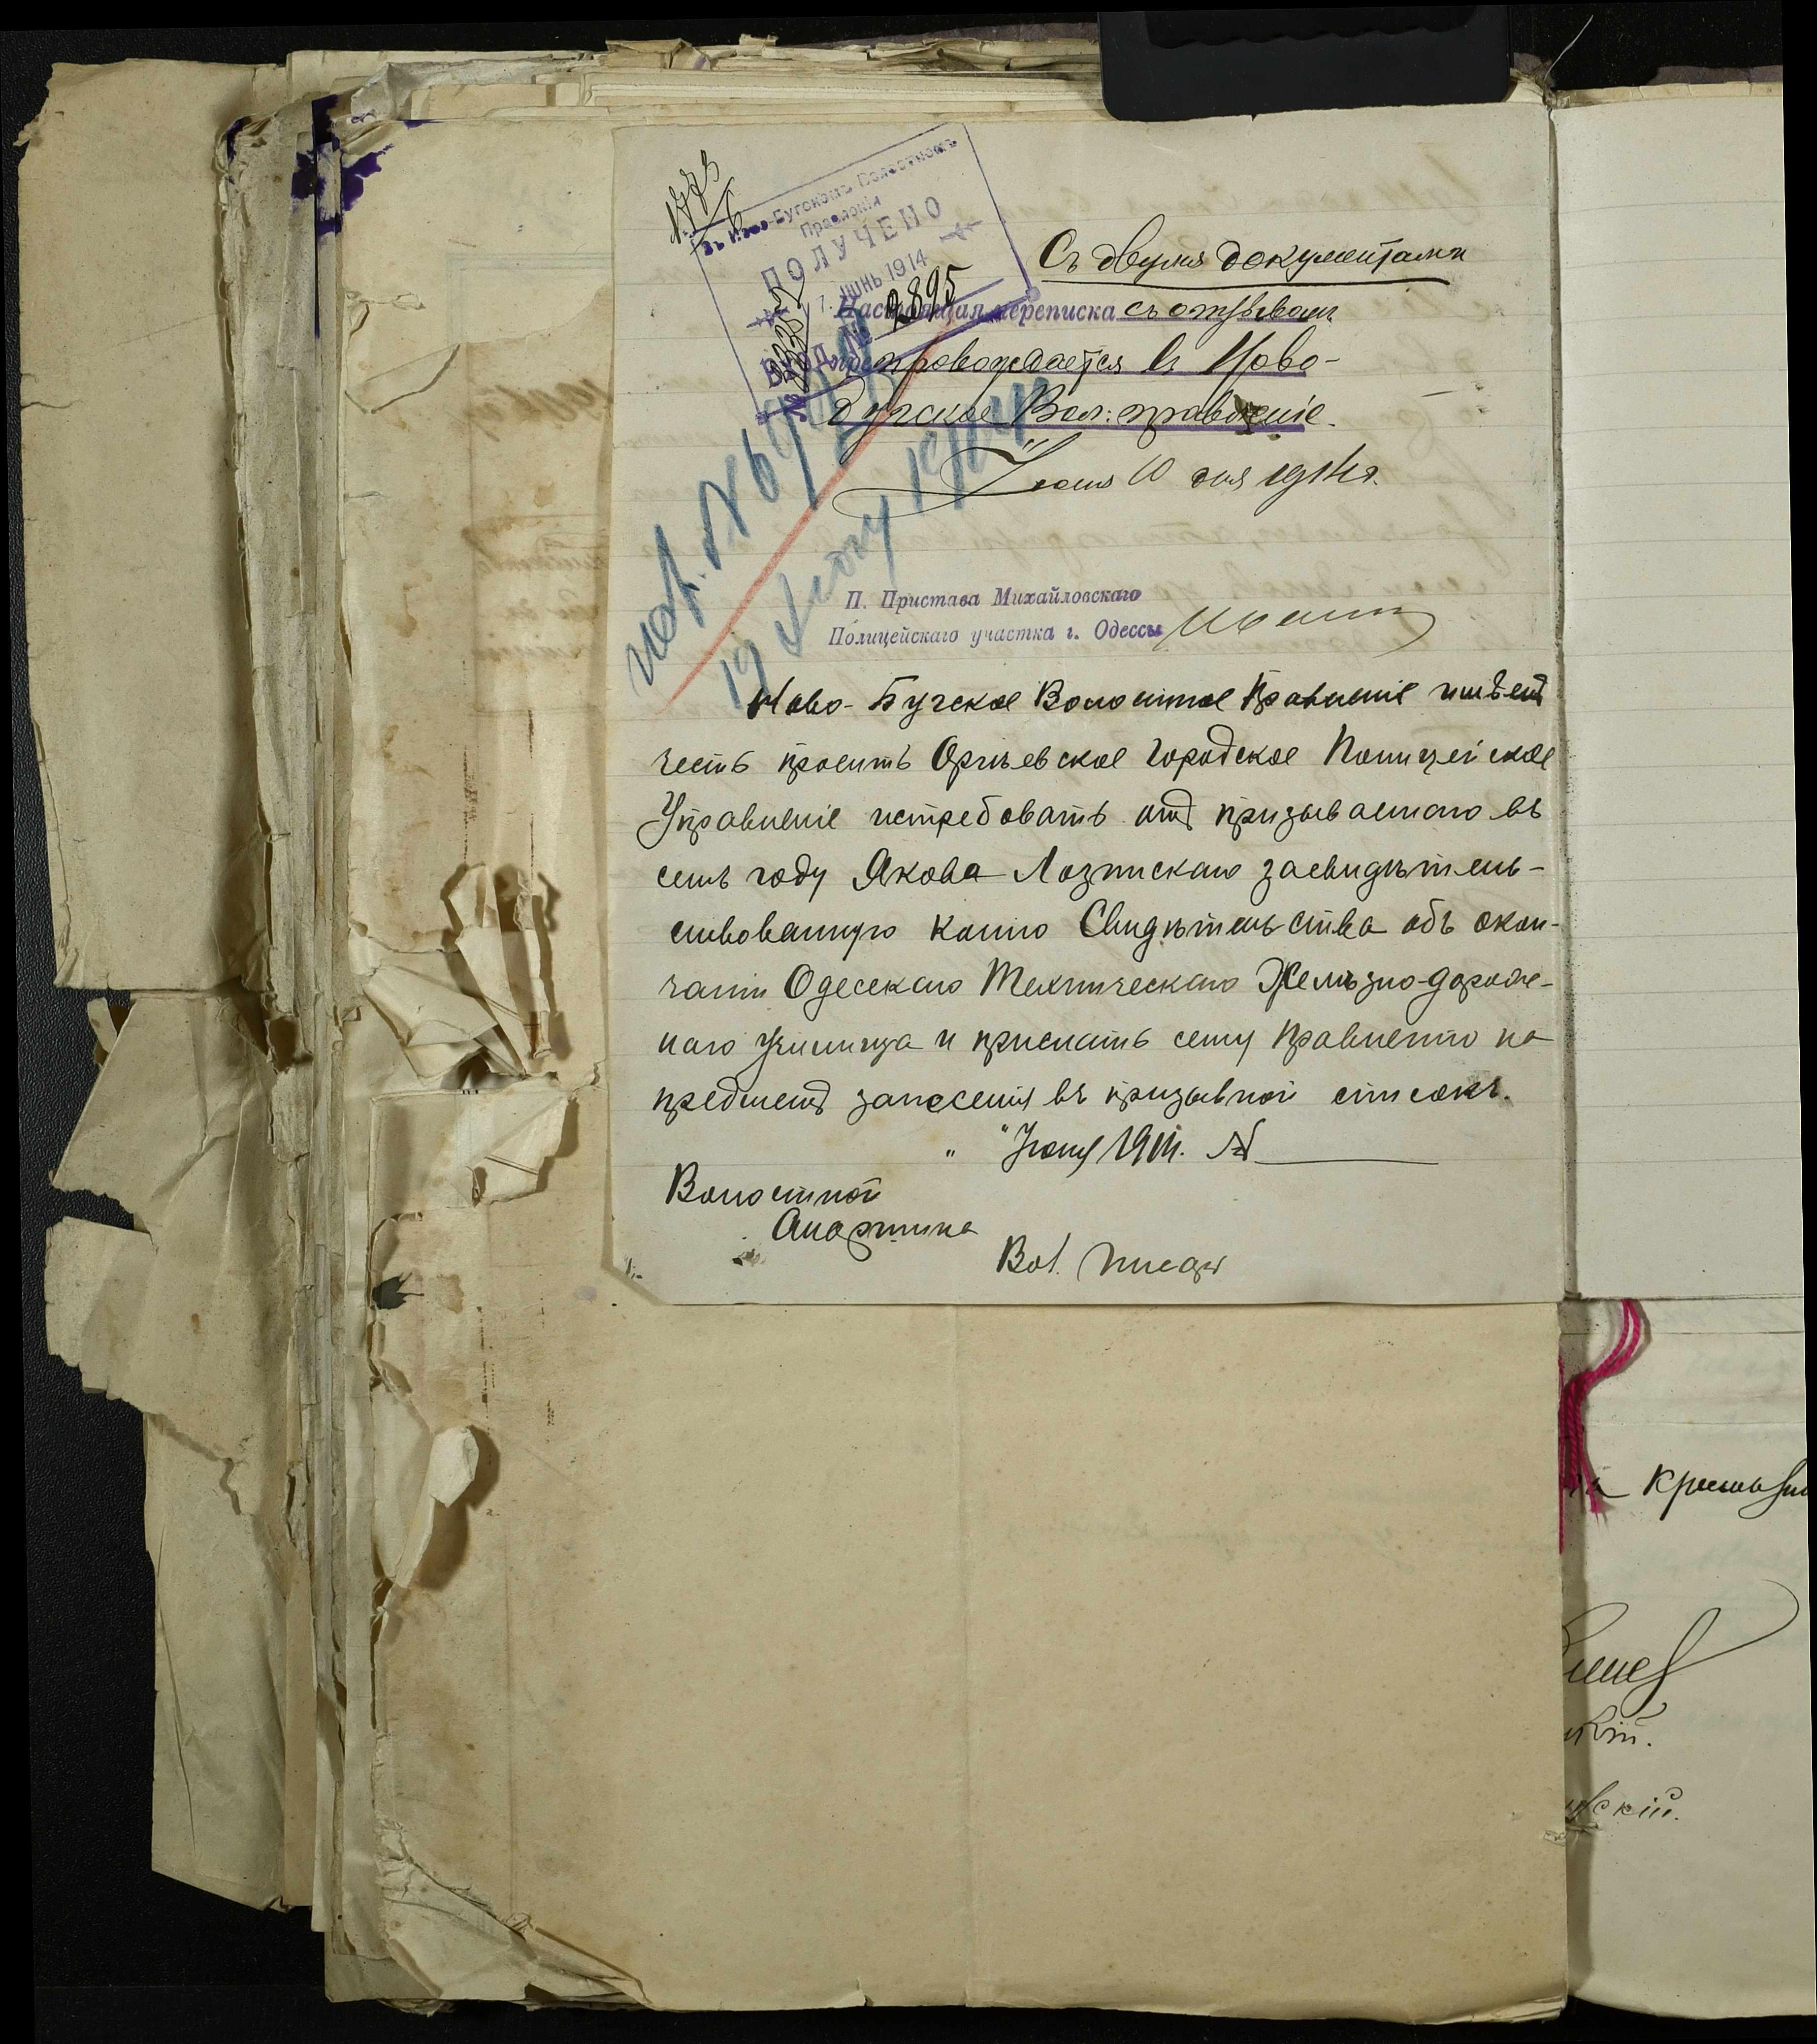 1773/6
Въ Ново-Бугскомъ Волостномъ
Правленіи
ПОЛУЧЕНО
ІЮНЬ 1914
ВХОД. № 2895
Съ двумя документами
Настоящая переписка съ отзывомъ
препровождается въ Ново-
Бугское Вол: правленіе.
Іюня 10 дня 1914 г.
19 Іюня 1914
П. Пристава Михайловскаго
Полицейскаго участка г. Одессы
Ново-Бугское Волостное Правленіе имѣетъ
честь просить Оргѣевское Городское Полицейское
Управленіе истребовать отъ призываемаго въ
семъ году Якова Лозинскаго засвидѣтель-
ствованную копію Свидѣтельства объ окон-
чаніи Одесскаго Техническаго Желѣзно-дорож-
наго училища и прислать сему Правленію на
предметъ занесенія въ призывной списокъ.
" " Іюня 1914. №
Волостной
Старшина
Вол. Писарь